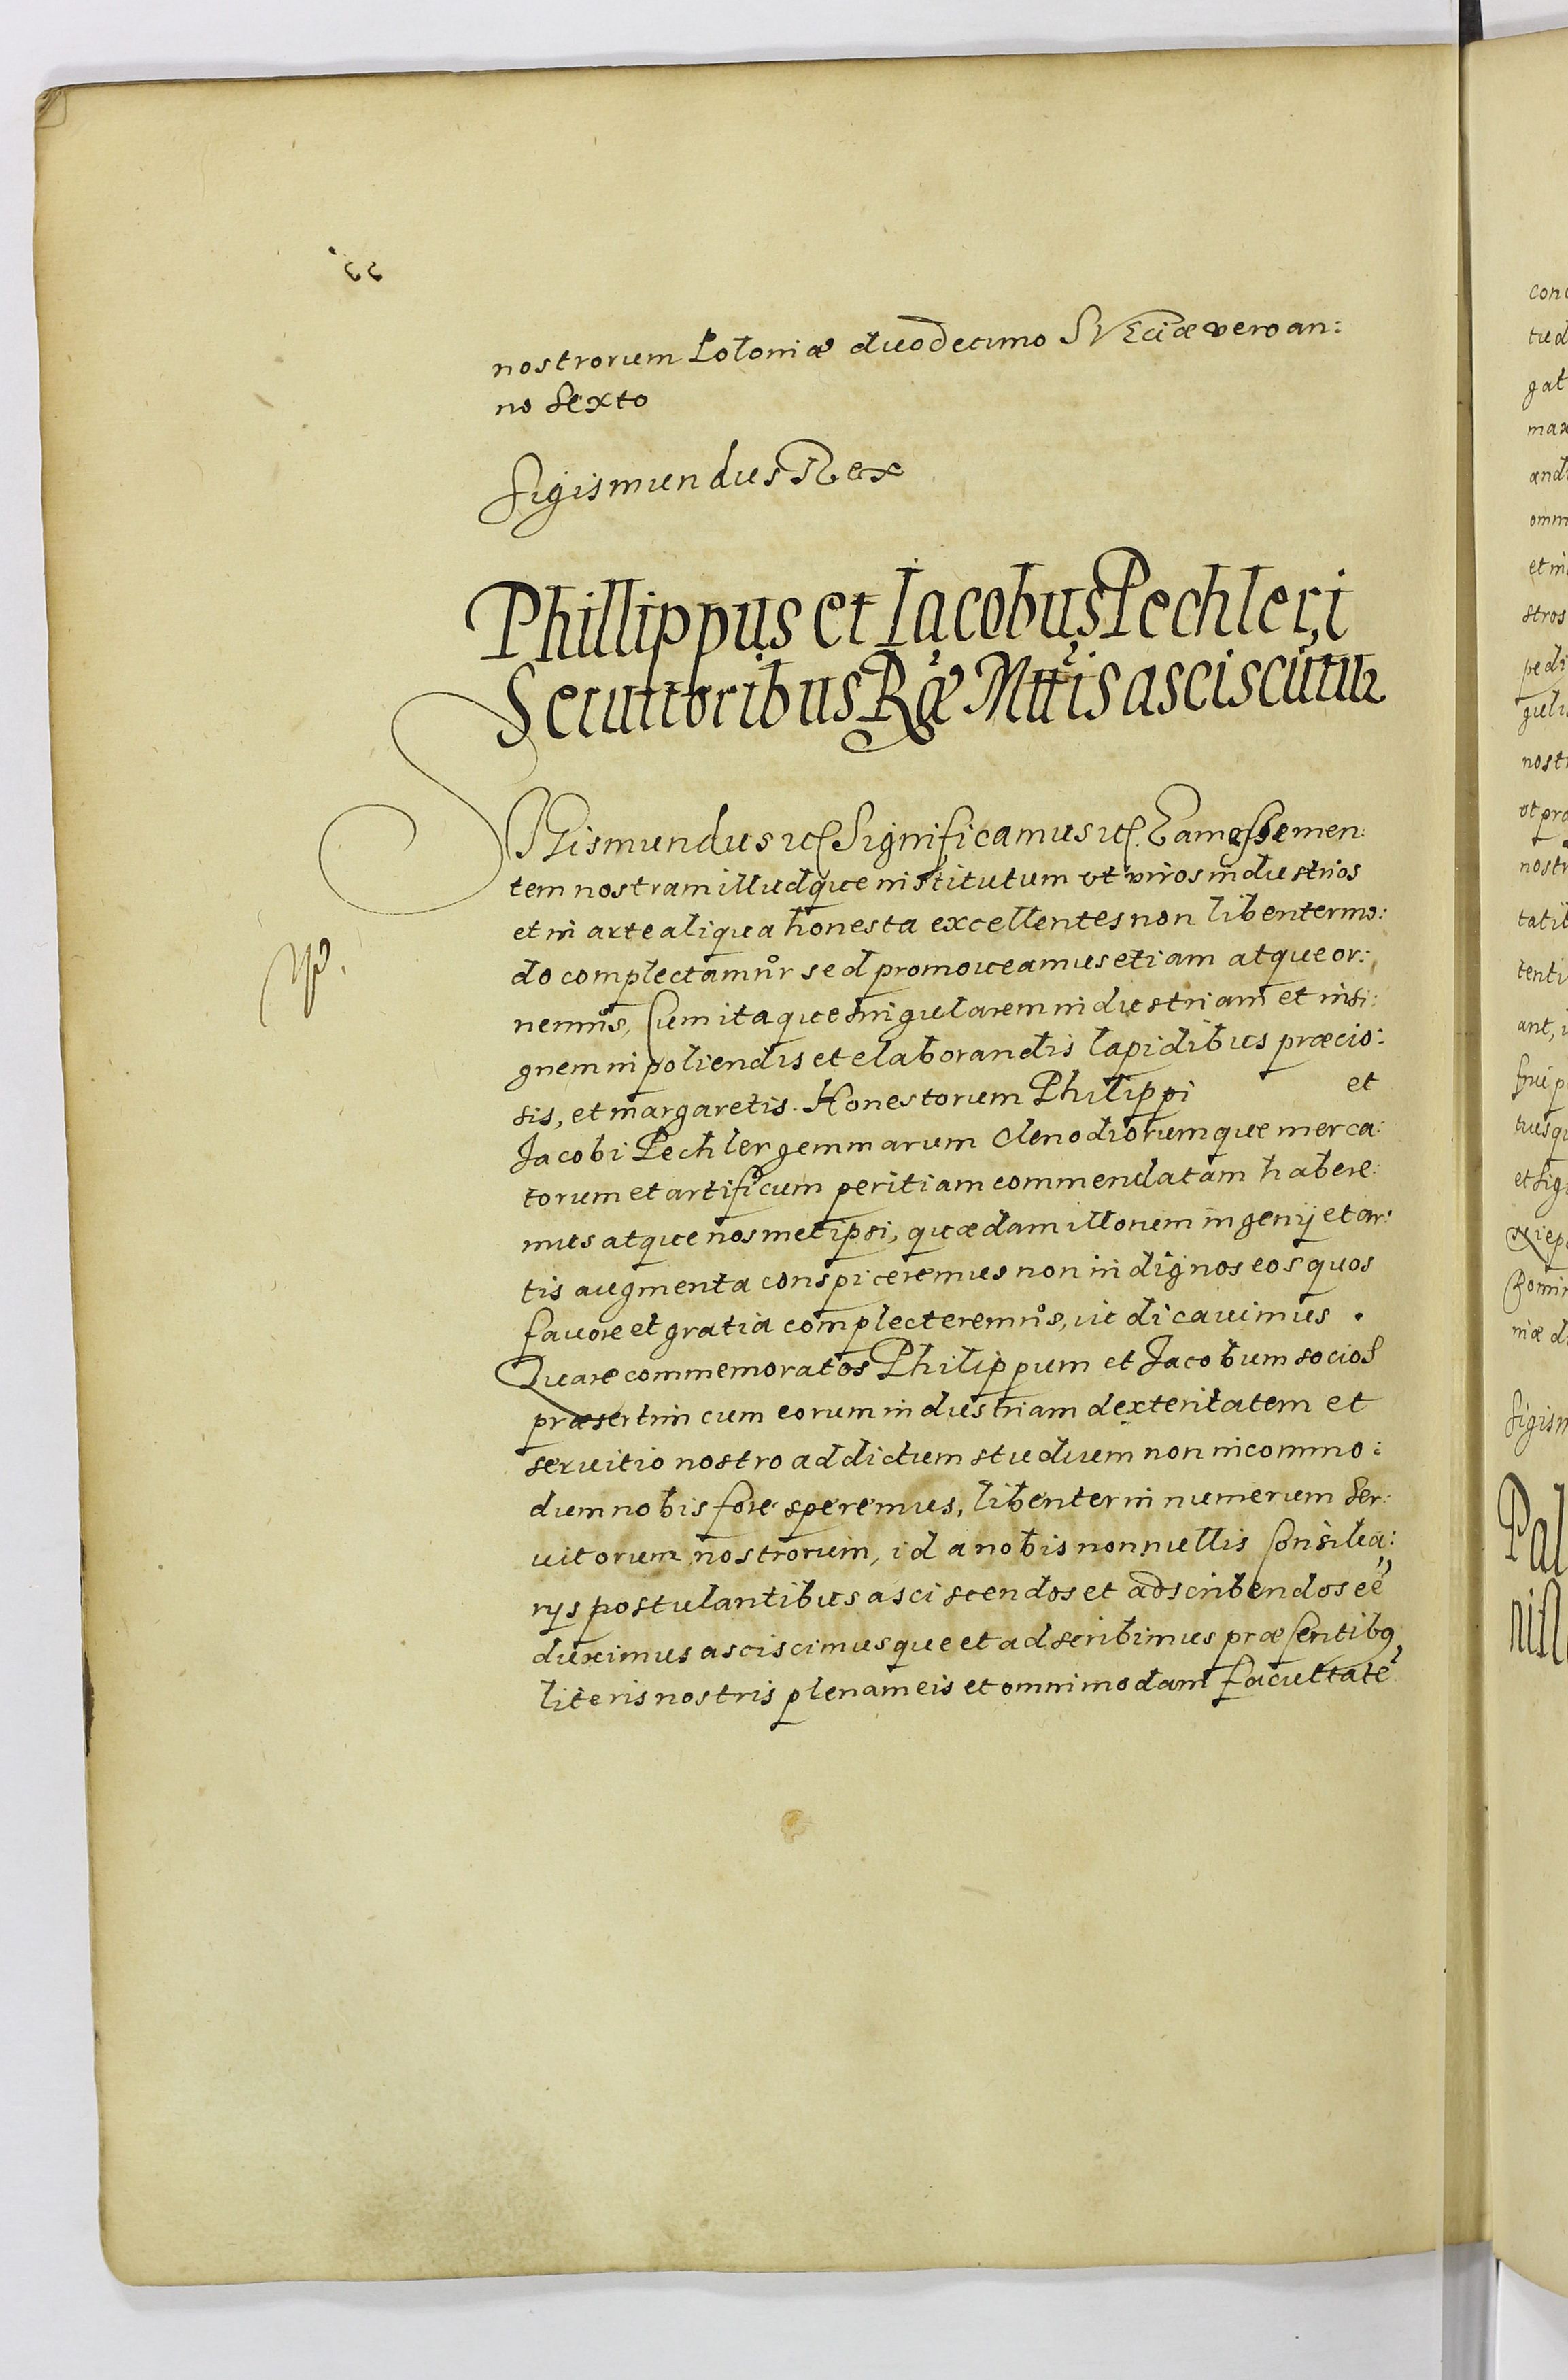 nostrorum Poloniæ duodecimo SVEciæ vero an:
no sexto
Sigismundus Rex
Phillippus et Iacobus Pechleri
Seruitoribus Ræ Mttis asciscūtur
SIGismundus etc Significamus etc. Eam esse men:
tem nostram illudque institutum vt viros industrios
et in arte aliqua honesta excellentes non libenter mo:
do complectamur sed promoueamus etiam atque or:
nemus, Cum itaque singularem industriam et insi:
gnem in poliendis et elaborandis lapidibus præcio:
sis, et margaretis. Honestorum Philippi et
Jacobi Pechler gemmarum Clenodiorumque merca:
torum et artificum peritiam commendatam habere:
mus atque nosmetipsi, quædam illorum ingenij et ar:
tis augmenta conspiceremus non indignos eos quos
fauore et gratia complecteremus, iudicauimus.
Quare commemoratos Philippum et Jacobum socios
præsertim cum eorum industriam dexteritatem et
seruitio nostro addictum studium non incommo:
dum nobis fore speremus, libenter in numerum ser:
uitorum nostrorum, id a nobis nonnullis Consilia:
rijs postulantibus asciscendos et adscribendos eē
duximus asciscimusque et adscribimus præsentibq
literis nostris plenam eis et omnimodam facultatē